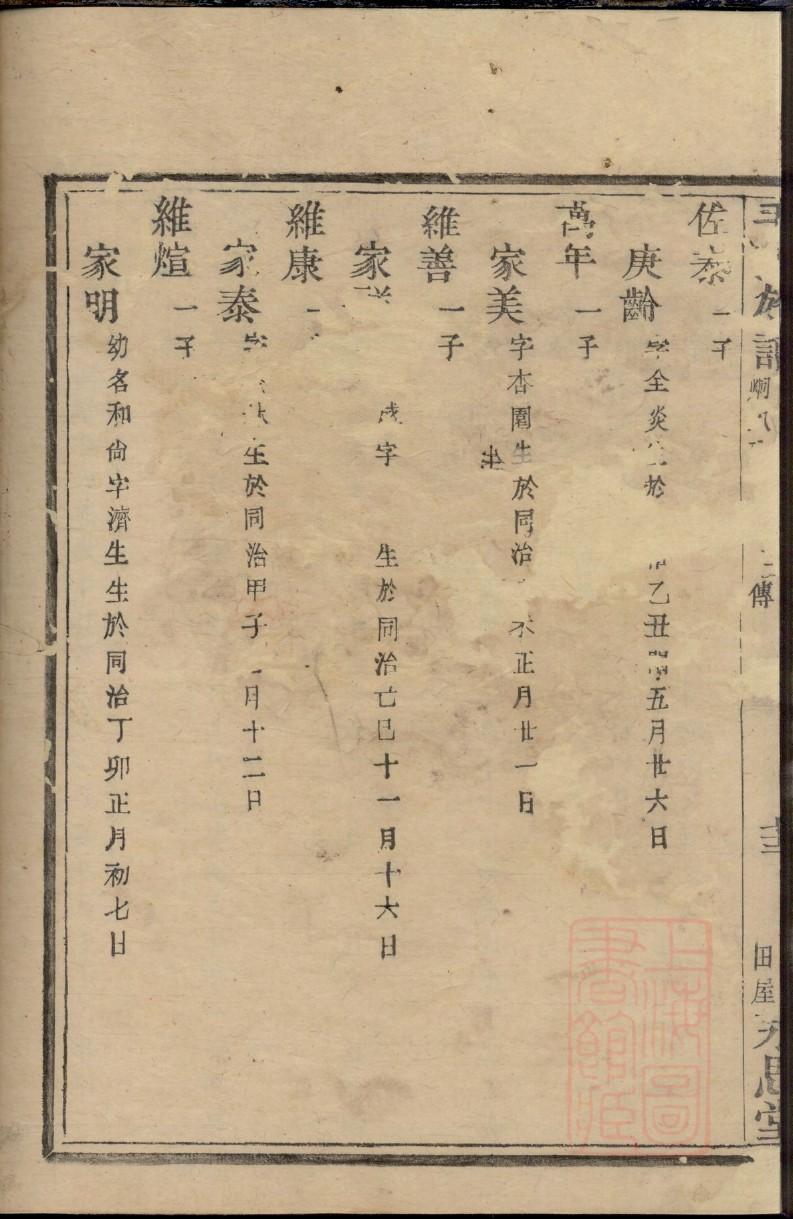 族譜
傳
田屋
思堂
佐泰 一子
庚齡 字全炎生於 乙丑閏五月廿六日
萬年 一子
家美 字杏園生於同治 正月廿一日
維善 一子
家 字 生於同治 巳十一月十六日
維康
家泰 字 生於同治甲子 月十二日
維煊 一子
家明 幼名和尚字濟生生於同治丁卯正月初七日
上海圖書館藏